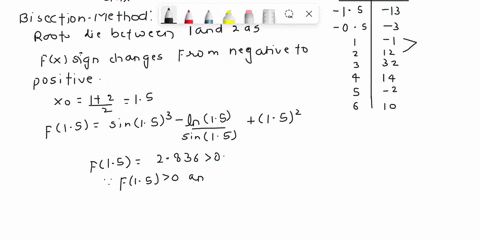 Bisection-Method:
Roots lie between 1 and 2 as
F(x) sign changes from negative to
positive.
x0 = 1+2/2 = 1.5
F(1.5) = sin(1.5)^3 - ln(1.5)/sin(1.5) + (1.5)^2
F(1.5) = 2.836 > 0.
∵ F(1.5) > 0 an
-1.5 -13
-0.5 -3
1 -1
2 12
3 32
4 14
5 -2
6 10